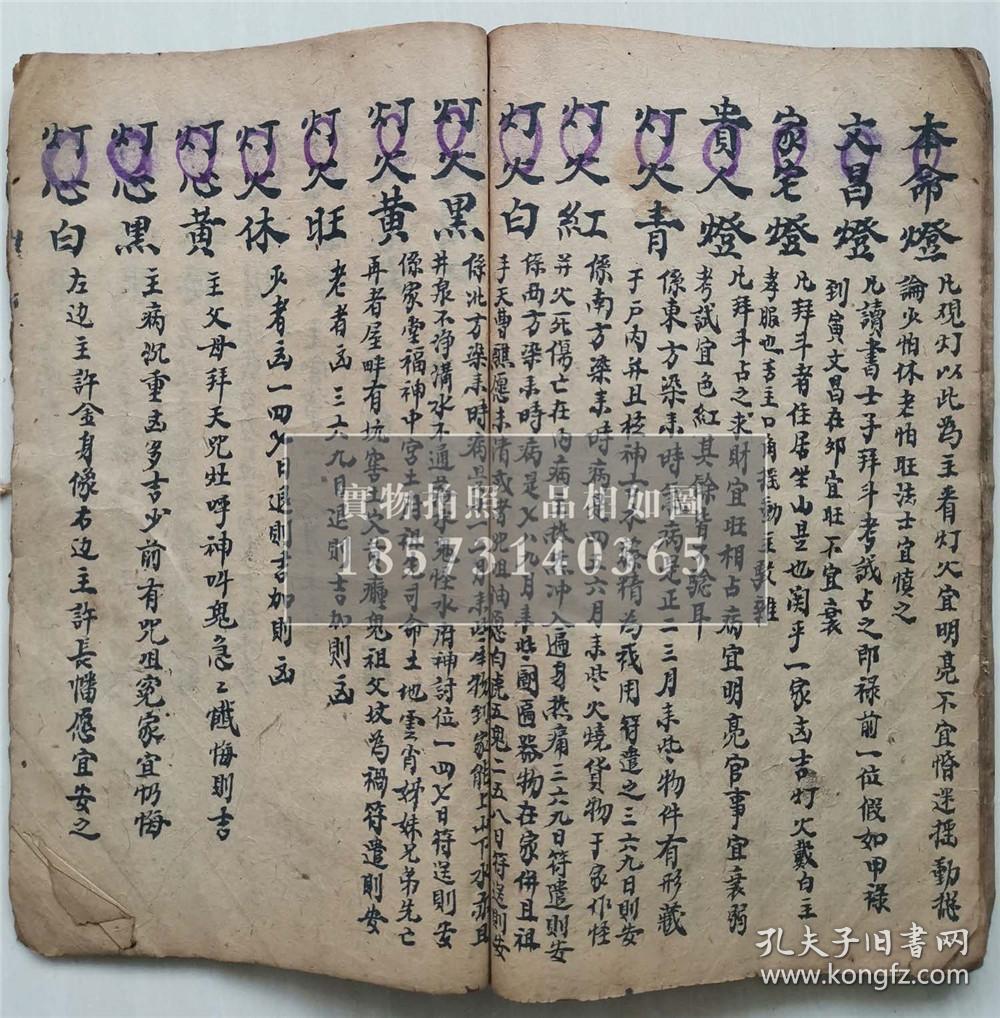 本命燈
凡現灯以此為主看灯火宜明亮不宜惛迷摇動
論少怕休老怕旺法士宜慎之
文昌燈
凡讀書士子拜斗考試占之即禄前一位假如甲禄
到寅文昌在卯宜旺不宜衰
家宅燈
凡拜斗者住居坐山是也関乎一家凶吉灯火戴白主
孝服也言主口角摇動主
貴人燈
凡拜斗占之求財宜旺相占病宜明亮官事宜衰弱
考試宜色紅其餘
灯火青
係東方染来時病是正二三月来些物件有形藏
于户内并且
為我用符遣之三六九日則安
灯火紅
係南方染来時病四五六月来些火燒貨物于家作怪
并火死傷亡在内病冲入遍身热痛三六九日符遣則安
灯火白
係西方染来時病是七八九月来些銅器物在家併且祖
手天曹醮愿未清或者咒咀油愿白虎五鬼二五八日符送則安
灯火黑
係北方染来時病
物到家能上山下水亦且
井泉不净溝水不通
水府神討位一四七日符送則安
灯火黄
係家堂福神中宫土
司命土地雲宵姊妹兄弟先亡
再者屋畔有坑窖
鬼祖父坟為禍符遣則安
灯火旺
老者凶三六九日退則吉加則凶
灯火休
少者凶一四七日退則吉加則凶
灯心黄
主父母拜天咒灶呼神叫鬼急々懺悔則吉
灯心黑
主病沉重凶多吉少前有咒咀冤家宜忏悔
灯心白
左边主許金身像右边主許長幡愿宜安之
實物拍照 品相如圖
18573140365
孔夫子旧书网
www.kongfz.com